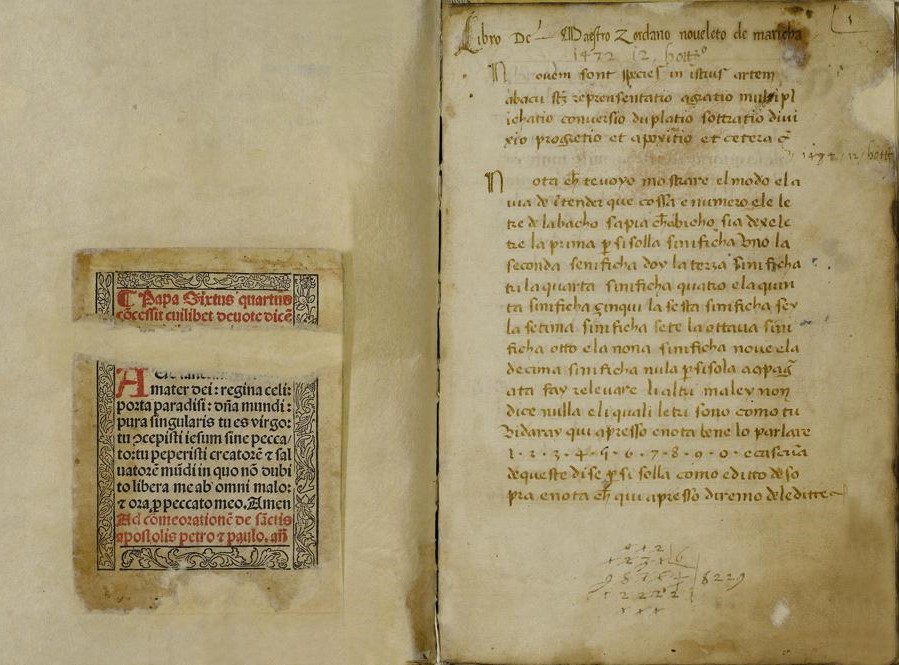 ¶ Papa Sixtus quartus
cōcessit cuilibet devote dicē
mater dei: regina celi:
porta paradisi: dña mundi:
pura singularis tu es virgo:
tu ꝯcepisti iesum sine pecca/
to: tu peperisti creatorē ⁊ sal
uatorē mūdi in quo nō dubi
to libera me ab omni malo:
⁊ ora ꝓ peccato meo. Amen
Ad cōmemorationē de sāctis
apostolis petro ⁊ paulo. añ
1
Libro De Maestro Zordano noveleto de maricha
1472 12
Novem sunt species in istius artem
abacu reprensentatio agratio multipl
ichatio conversio duplatio sottratio divi
xio progretio et apoxitio et cetera
1492 12
Nota ch te voyo mostrare el modo e la
via de itender que cossa e numero e le le
tre de labacho sapia chabicho sia dexe le
tre la prima p si solla sinificha uno la
seconda senificha doy la terza sinificha
tri la quarta sinificha quatro e la quin
ta sinificha çinqui la sesta sinificha sey
la setima sinificha sete la ottava sini
ficha otto e la nona sinificha nove e la
decima sinificha nula p si sola
ata fay relevare li altri male y non
dice nulla e li quali letri sono como tu
vidaray qui apresso e nota bene lo parlare
1 · 2 · 3 · 4 · 5 · 6 · 7 · 8 · 9 · 0 · e cascuna
de queste dise p si solla como e ditto de so
pra e nota ch qui apresso diremo dele ditte
8229